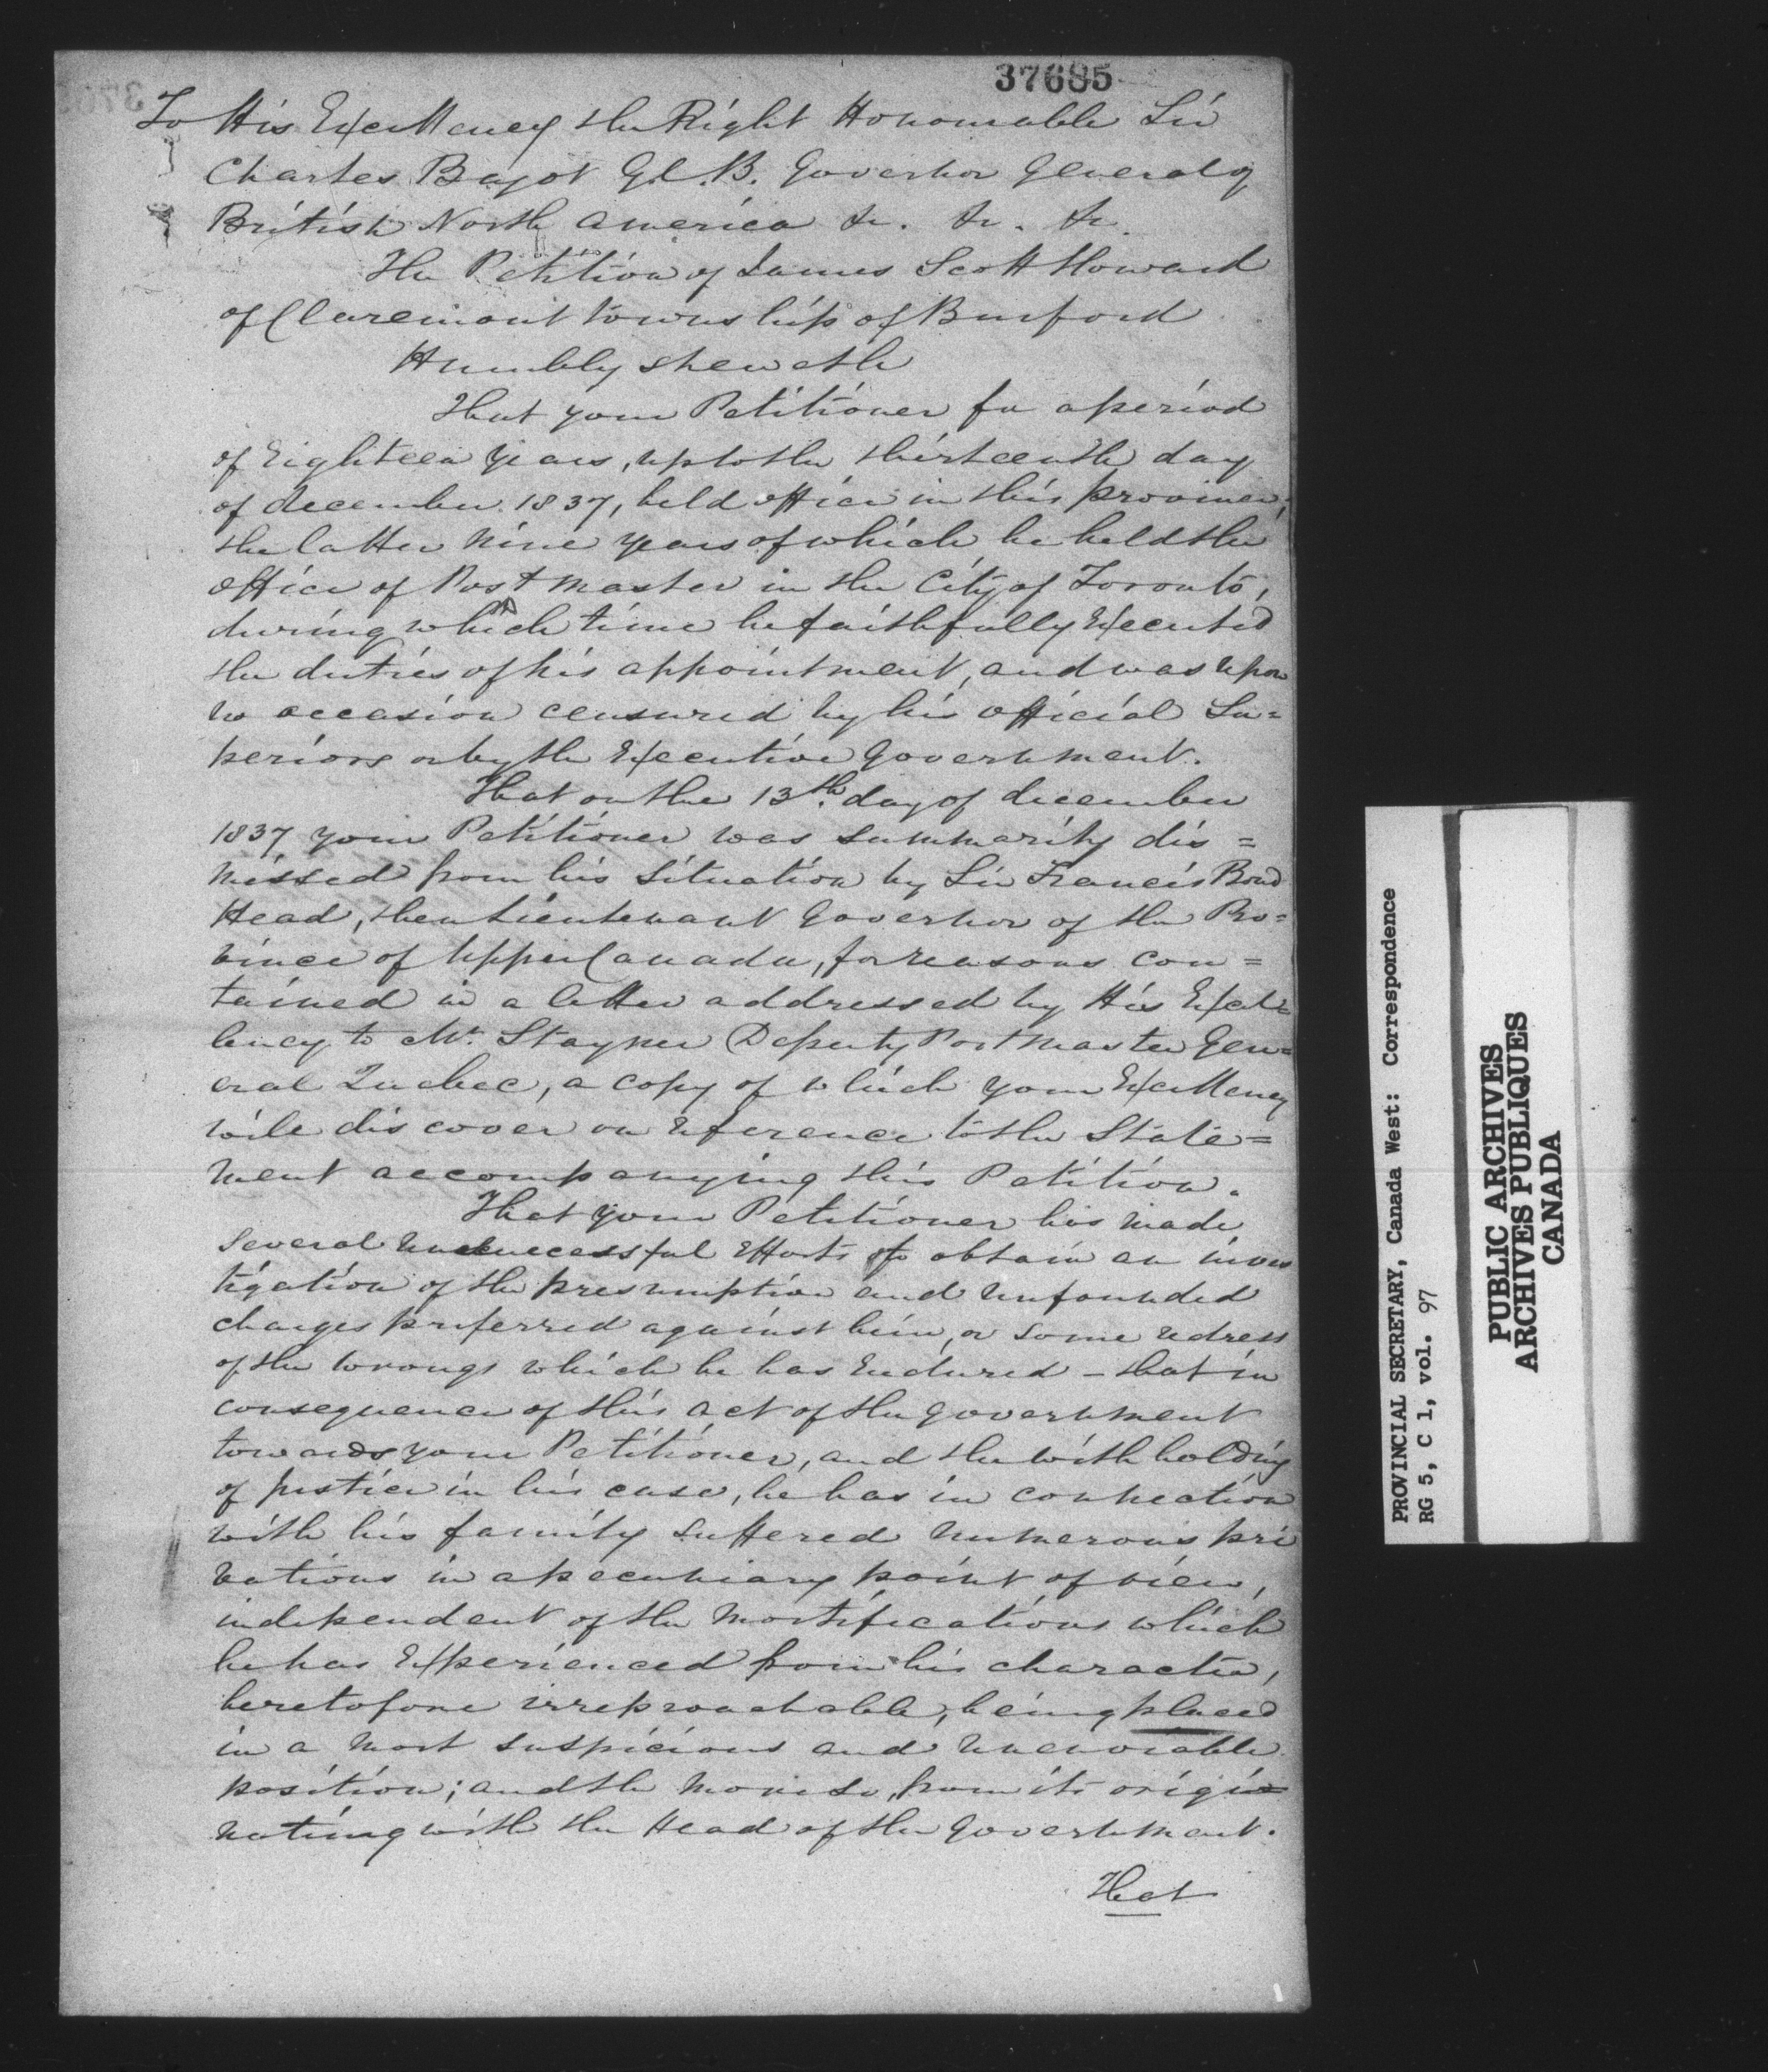 37685
To His Excellency the Right Honourable Sir
Charles Bagot G.C.B. Governor General of
British North America &c. &c. &c.
The Petition of James Scott Howard
of Claremont township of Burford
Humbly sheweth
That your Petitioner for a period
of Eighteen years, up to the thirteenth day
of december 1837, held office in this province,
the latter nine years of which he held the
office of Postmaster in the City of Toronto,
during which time he faithfully Executed
the duties of his appointment, and was upon
no occasion censured by his official Su=
periors or by the Executive Government.
That on the 13th. day of december
1837 your Petitioner was summarily dis=
missed from his situation by Sir Francis Bond
Head, then Lieutenant Governor of the Pro=
vince of Upper Canada, for reasons con=
tained in a letter addressed by His Excel=
lency to Mr. Stayner Deputy Postmaster Gen=
eral Quebec, a copy of which your Excellency
will discover on reference to the State=
ment accompanying this Petition.
That your Petitioner has made
several unsuccessful Efforts to obtain an inves
tigation of the presumption and unfounded
charges preferred against him, or some redress
of the wrongs which he has Endured - that in
consequence of this act of the Government
towards your Petitioner, and the withholding
of justice in his case, he has in connection
with his family suffered numerous pri
vations in a pecuniary point of view,
independent of the mortifications which
he has Experienced from his character,
heretofore irreproachable, being placed
in a most suspicious and unenviable
position; and the more so, from its origi=
nating with the Head of the Government.
That
PROVINCIAL SECRETARY, Canada West: Correspondence
RG 5, C 1, vol. 97
PUBLIC ARCHIVES
ARCHIVES PUBLIQUES
CANADA